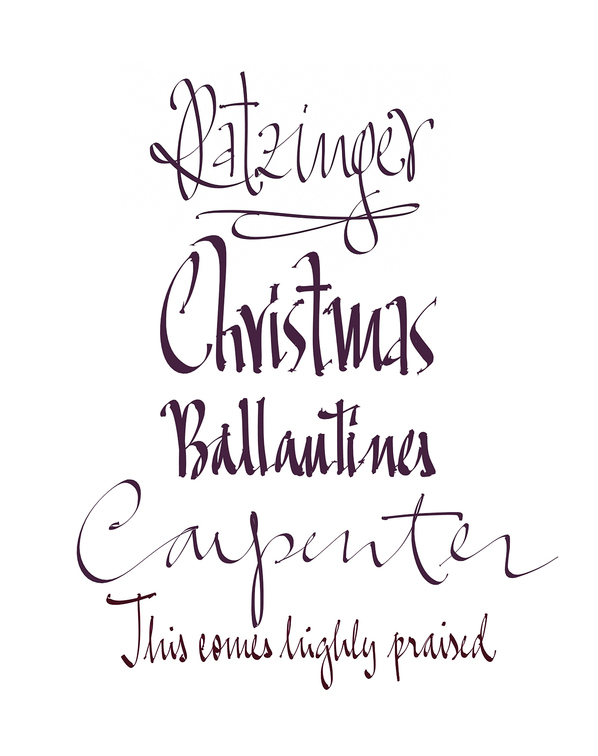 Ratzinger
Christmas
Ballantines
Carpenter
This comes highly praised